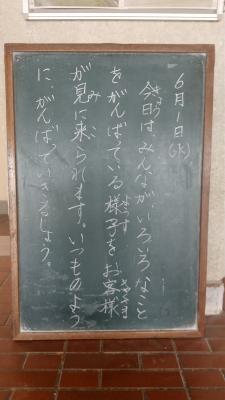 6月1日(水)
今日は、みんなが、いろいろなこと
をがんばっている様子をお客様
が見に来られます。いつものよう
に、がんばっていきましょう。